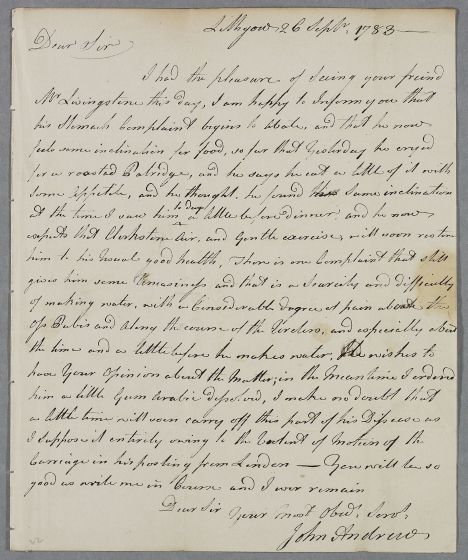 Lithgow 26 Septr. 1783—
Dear Sir
I had the pleasure of Seeing your freind
Mr Livingstone this day, I am happy to Inform you that
his Stomach Complaint begins to abate, and that he now
feels some inclination for food, so far that Yesterday he eryed
for a roasted Patridge, and he says he eat a little of it with
Some appetite, and he thought, he found Some inclination
at the time I saw him to day a little before dinner, and he now
expects that Clerkstone Air, and Gentle exercise, will soon restore
him to his Usual good health. There is one Complaint that still
gives him some Uneasiness and that is a Scarcity and difficulty
of making water, with a Considerable degree of pain about the
Oss Pubis and along the course of the Ureters, and especially about
the time and a little before he makes water. He wishes to
have Your Opinion about the Matter; in the Mean time I ordered
him a little Gum Arabic dissolved, I make no doubt that
a little time will soon carry off this part of his Disease as
I suppose it entirely owing to the Motion of the
Carriage in his posting from London — You will be so
good as write me in Course and I ever remain
Dear Sir Your most Obedt. Servt.
John Andrew